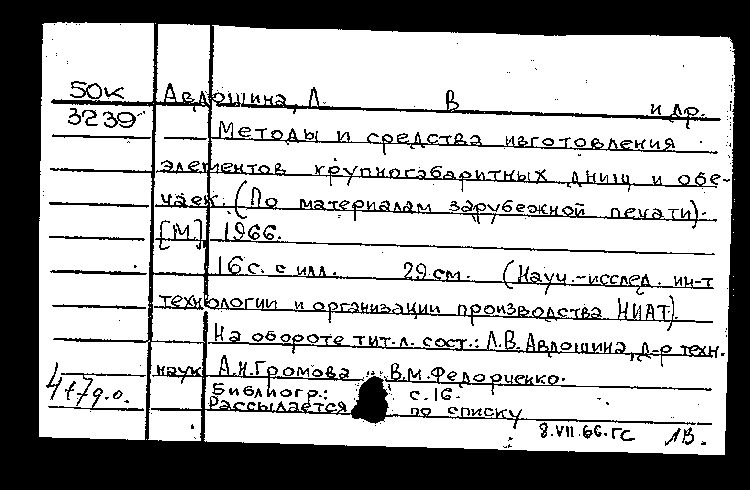 50К Авдошина, Л. В и др.
3239 Методы и средства изготовления
элементов крупногабаритных днищ и обе-
чаек. (По материалам зарубежной печати).
[М.] 1966.
16 с. с илл. 29 см. (Науч.-исслед. ин-т
технологии и организации производства НИАТ).
На обороте тит. л. сост.: Л.В. Авдошина, д-р техн.
наук А.Н. Громова В.М. Федориенко.
Библиогр.: с. 16.
Рассылается по списку
8.VII.66.ГС 1В.